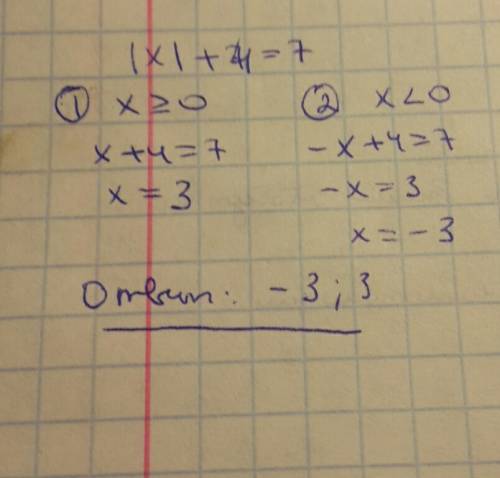 |x| + 4 = 7
① x ≥ 0 ② x < 0
x + 4 = 7 -x + 4 = 7
x = 3 -x = 3
x = -3
Ответ: -3; 3